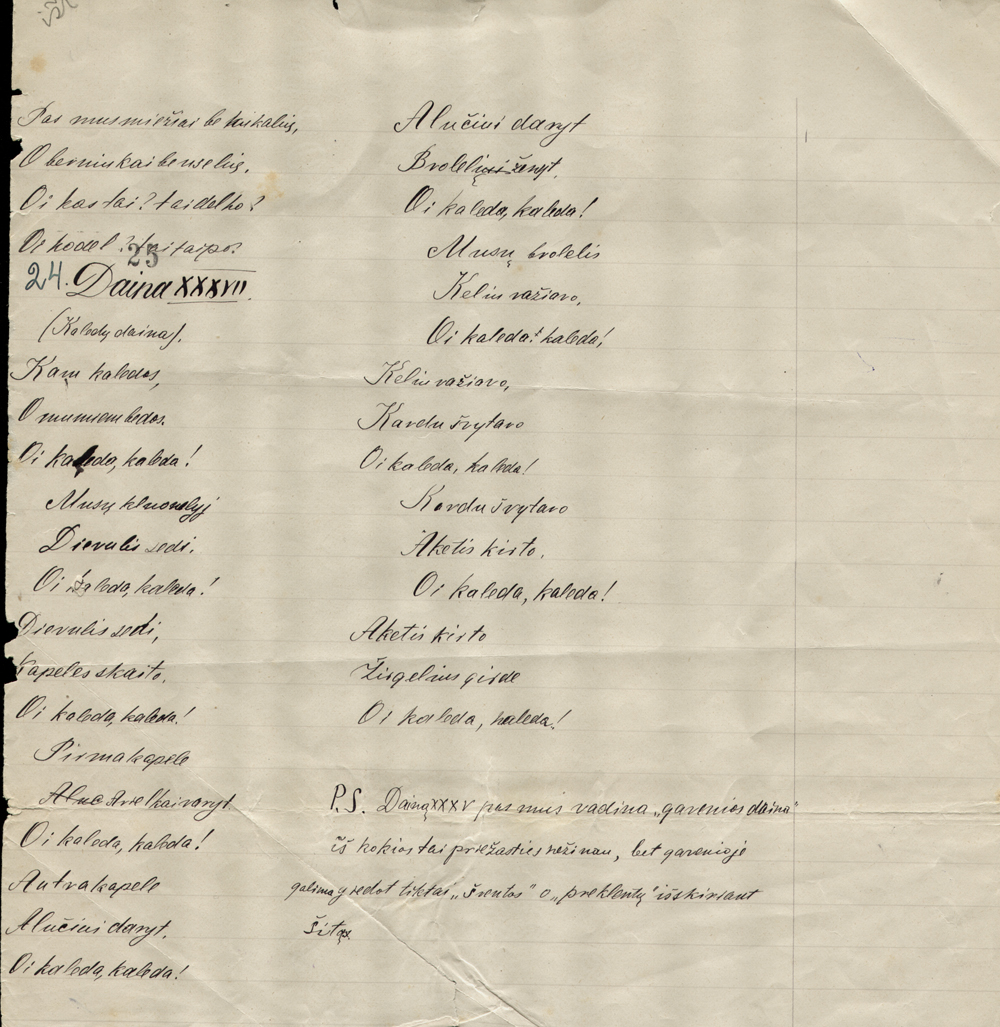 Pas mus miežiai be vaikalių,
O berniukai be uselių.
Oi kas tai? tai delko?
Oi kodel? tai taipo?
25
24. Daina XXXVII
(Kaledų daina).
Kam kaledos,
O mumiem bedos.
Oi kaleda, kaleda!
Musų kluonelyj
Dievulis sedi.
Oi kaleda, kaleda!
Dievulis sedi,
Kapeles skaito.
Oi kaleda, kaleda!
Pirma kapele
Aruc Arielkai varyt
Oi kaleda, kaleda!
Antra kapele
Alučiui daryt.
Oi kaleda, kaleda!
Alučiui daryt
Brolelių ženyt.
Oi kaleda, kaleda!
Musų brolelis
Keliu važiavo,
Oi kaleda! kaleda!
Keliu važiavo,
Kardu švytavo
Oi kaleda, kaleda!
Kardu švytavo
Aketis kirto,
Oi kaleda, kaleda!
Aketis kirto
Žirgelius girde
Oi kaleda, kaleda!
P.S. Dainą XXXV pas mus vadina „gavenios daina"
iš kokios tai priežasties nežinau, bet gavenioje
galima giedot tiktai „šventos" o „preklentų" išskiriant
šitą